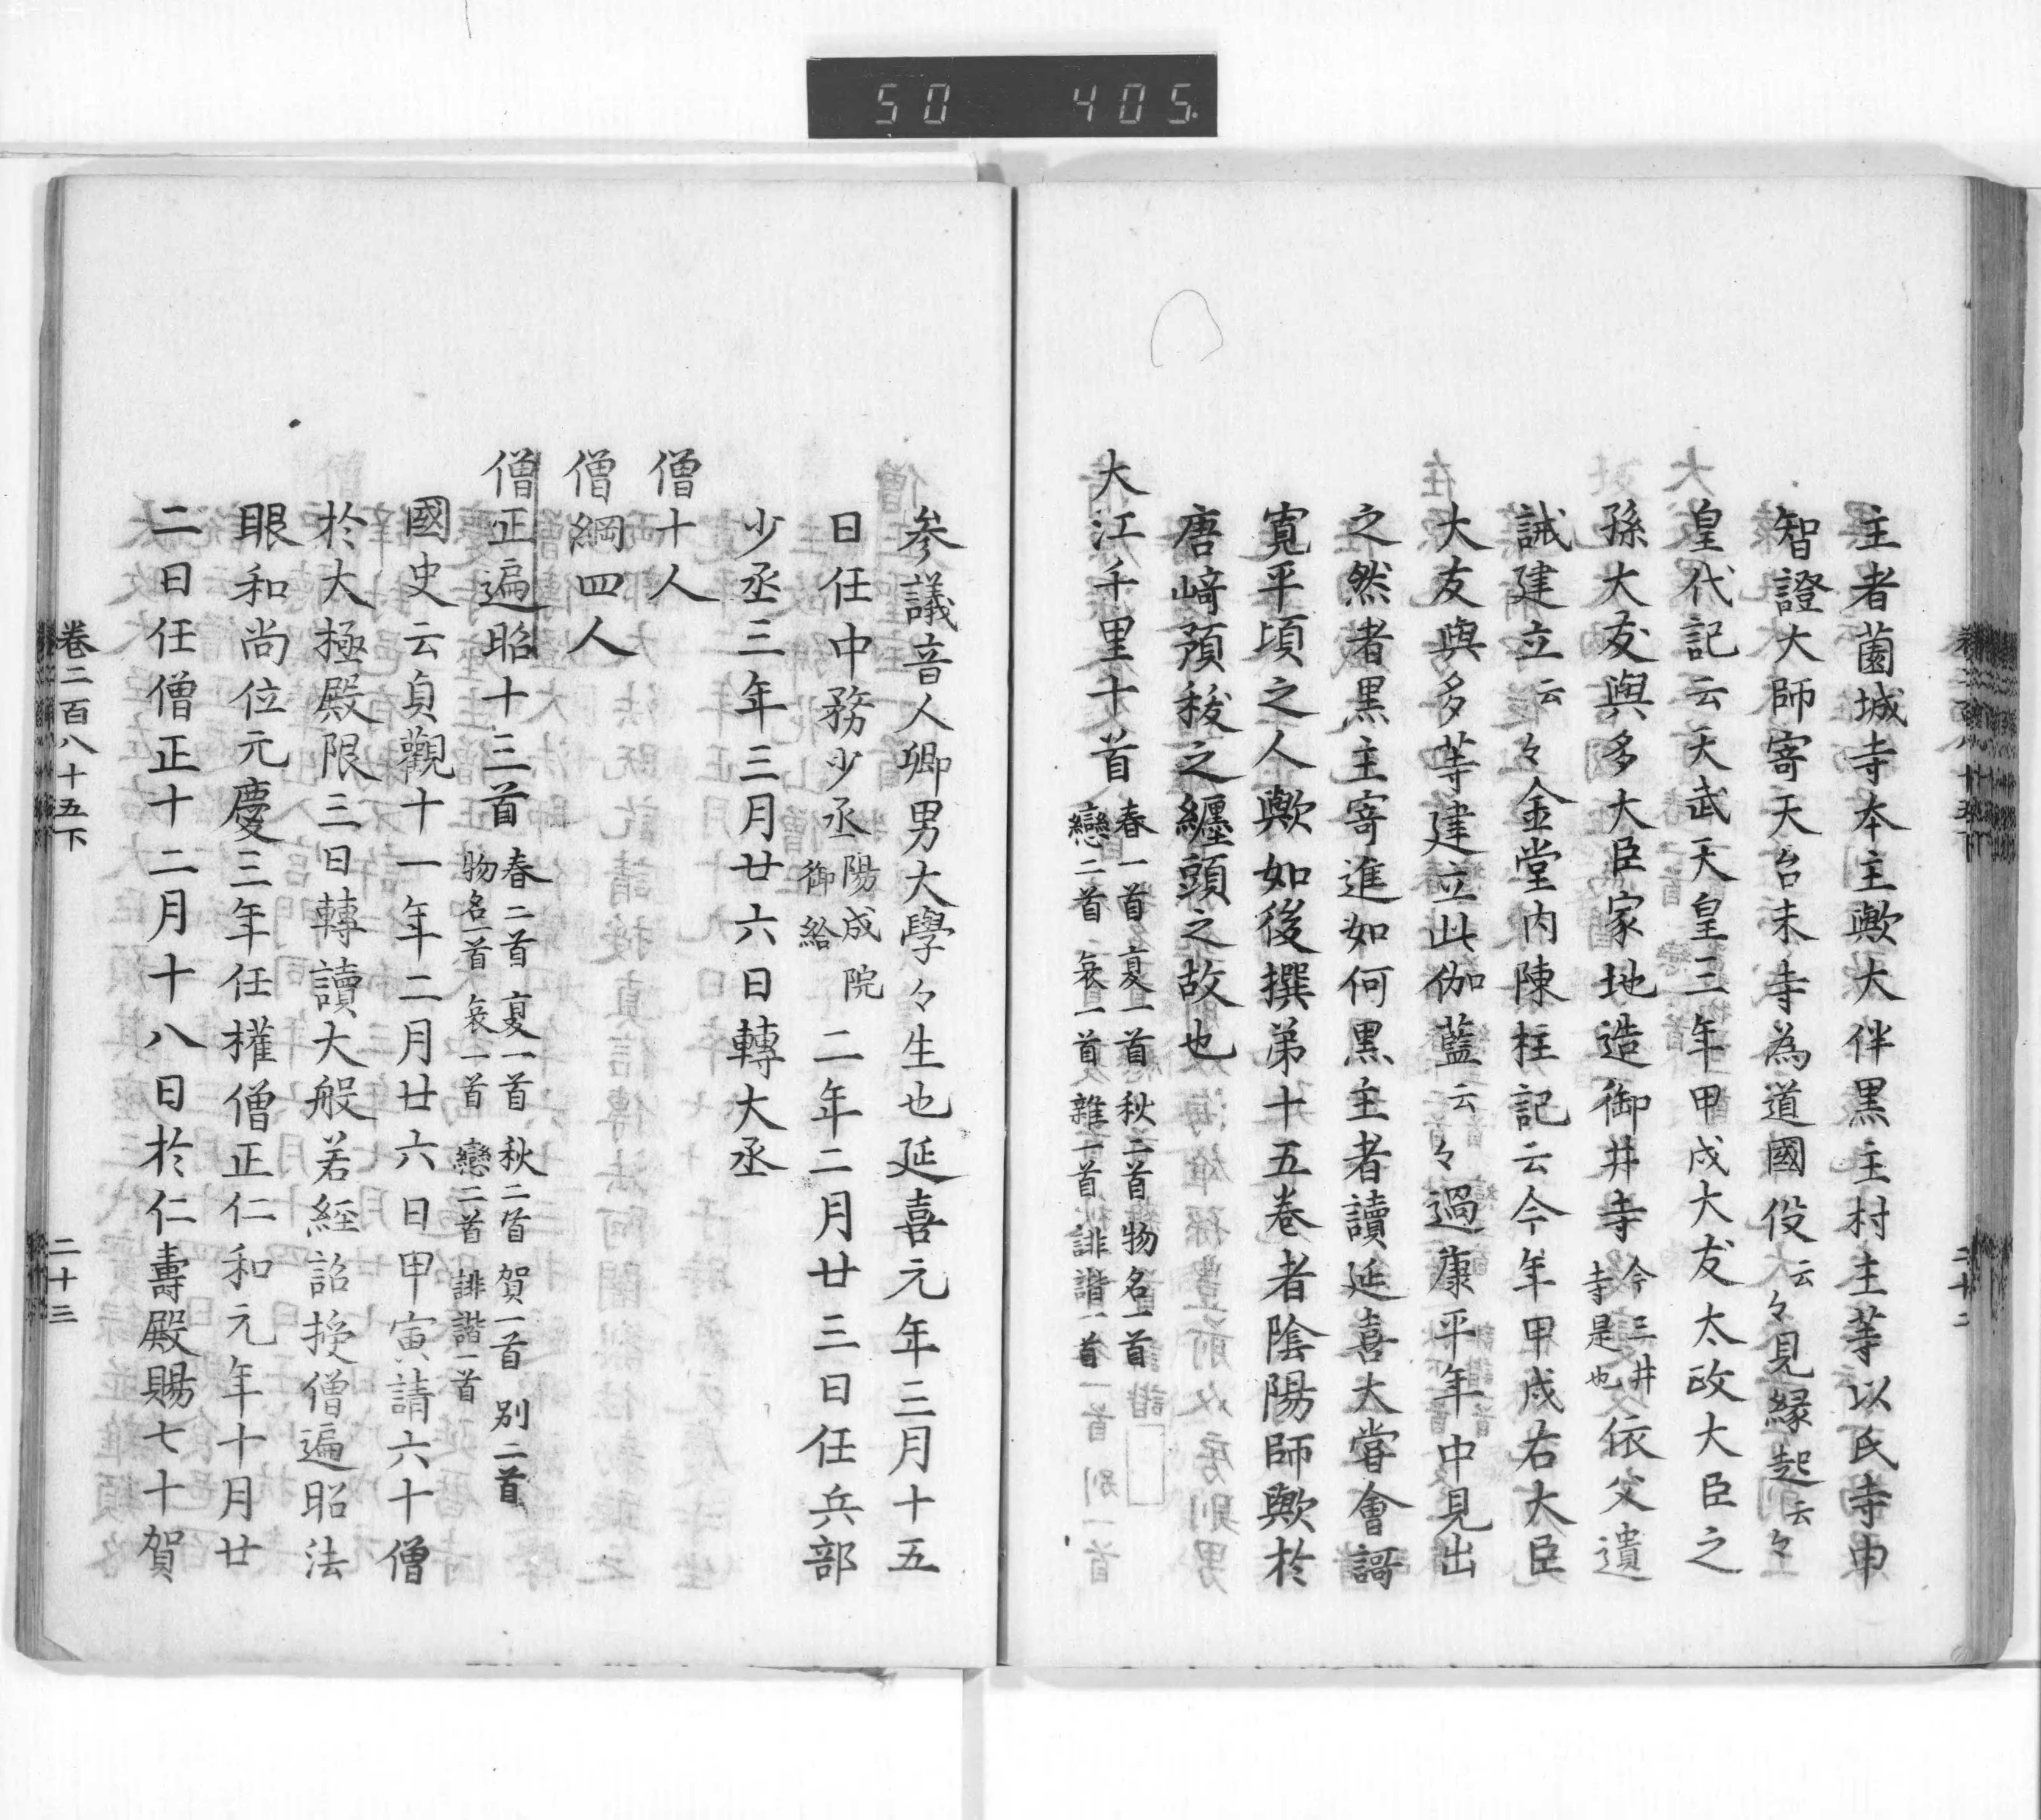 50 405
主者薗城寺本主歟大伴黒主村主等以氏寺申
智證大師寄天台末寺為道國役云々見縁起云々
皇代記云天武天皇三年甲戌大友太政大臣之
孫大友與多大臣家地造御井寺今三井寺是也依父遺
誡建立云々金堂内陳柱記云今年甲戌右大臣
大友與多等建立此伽藍云々過康平年中見出
之然者黒主寄進如何黒主者讀延喜大甞會謌
寛平頃之人歟如後撰第十五巻者陰陽師歟於
唐﨑預秡之纏頭之故也
大江千里十首春一首 夏一首 秋二首 物名一首
戀二首 哀一首 雜一首 誹諧一首
参議音人卿男大學々生也延喜元年三月十五
日任中務少丞陽成院御給二年二月廿三日任兵部
少丞三年三月廿六日轉大丞
僧十人
僧綱四人
僧正遍昭十三首春二首 夏一首 秋二首 賀一首 別二首
物名一首 哀一首 戀二首 誹諧一首
國史云貞觀十一年二月廿六日甲寅請六十僧
於大極殿限三日轉讀大般若經詔授僧遍昭法
眼和尚位元慶三年任權僧正仁和元年十月廿
二日任僧正十二月十八日於仁壽殿賜七十賀
巻二百八十五下
二十三